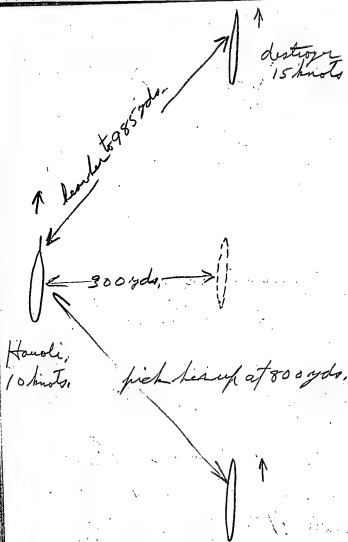 destroyer
15 knots
hear her to 985 yds.
300 yds.
Hauoli,
10 knots.
pick her up at 800 yds.